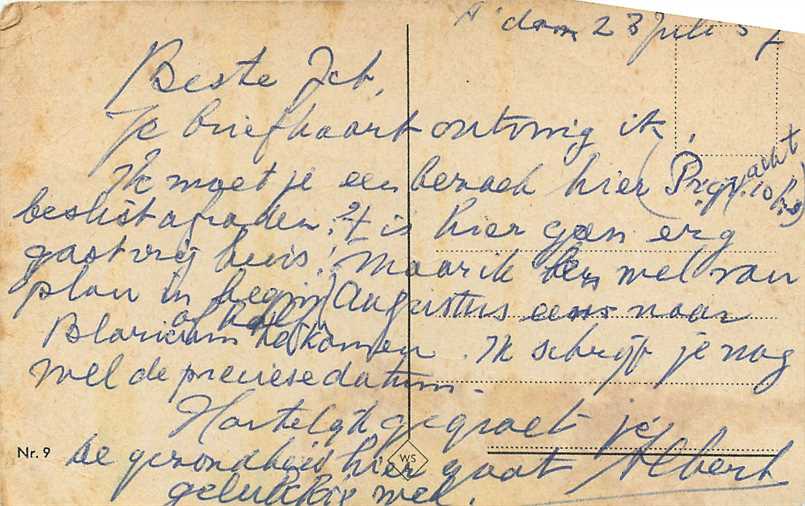 A'dam 23 Juli 5
Beste Job,
Je briefkaart ontving ik.
Ik moet je een bezoek hier (Pr.gr. acht 10 hs)
beslist afraden. 't is hier geen erg
gastvrij huis! Maar ik ben wel van
plan in begin Augustus eens naar
of half
Blaricum te komen. Ik schrijf je nog
wel de preciese datum.
Hartelijk gegroet je
Albert
De gezondheid hier gaat
gelukkig wel.
Nr. 9
WS